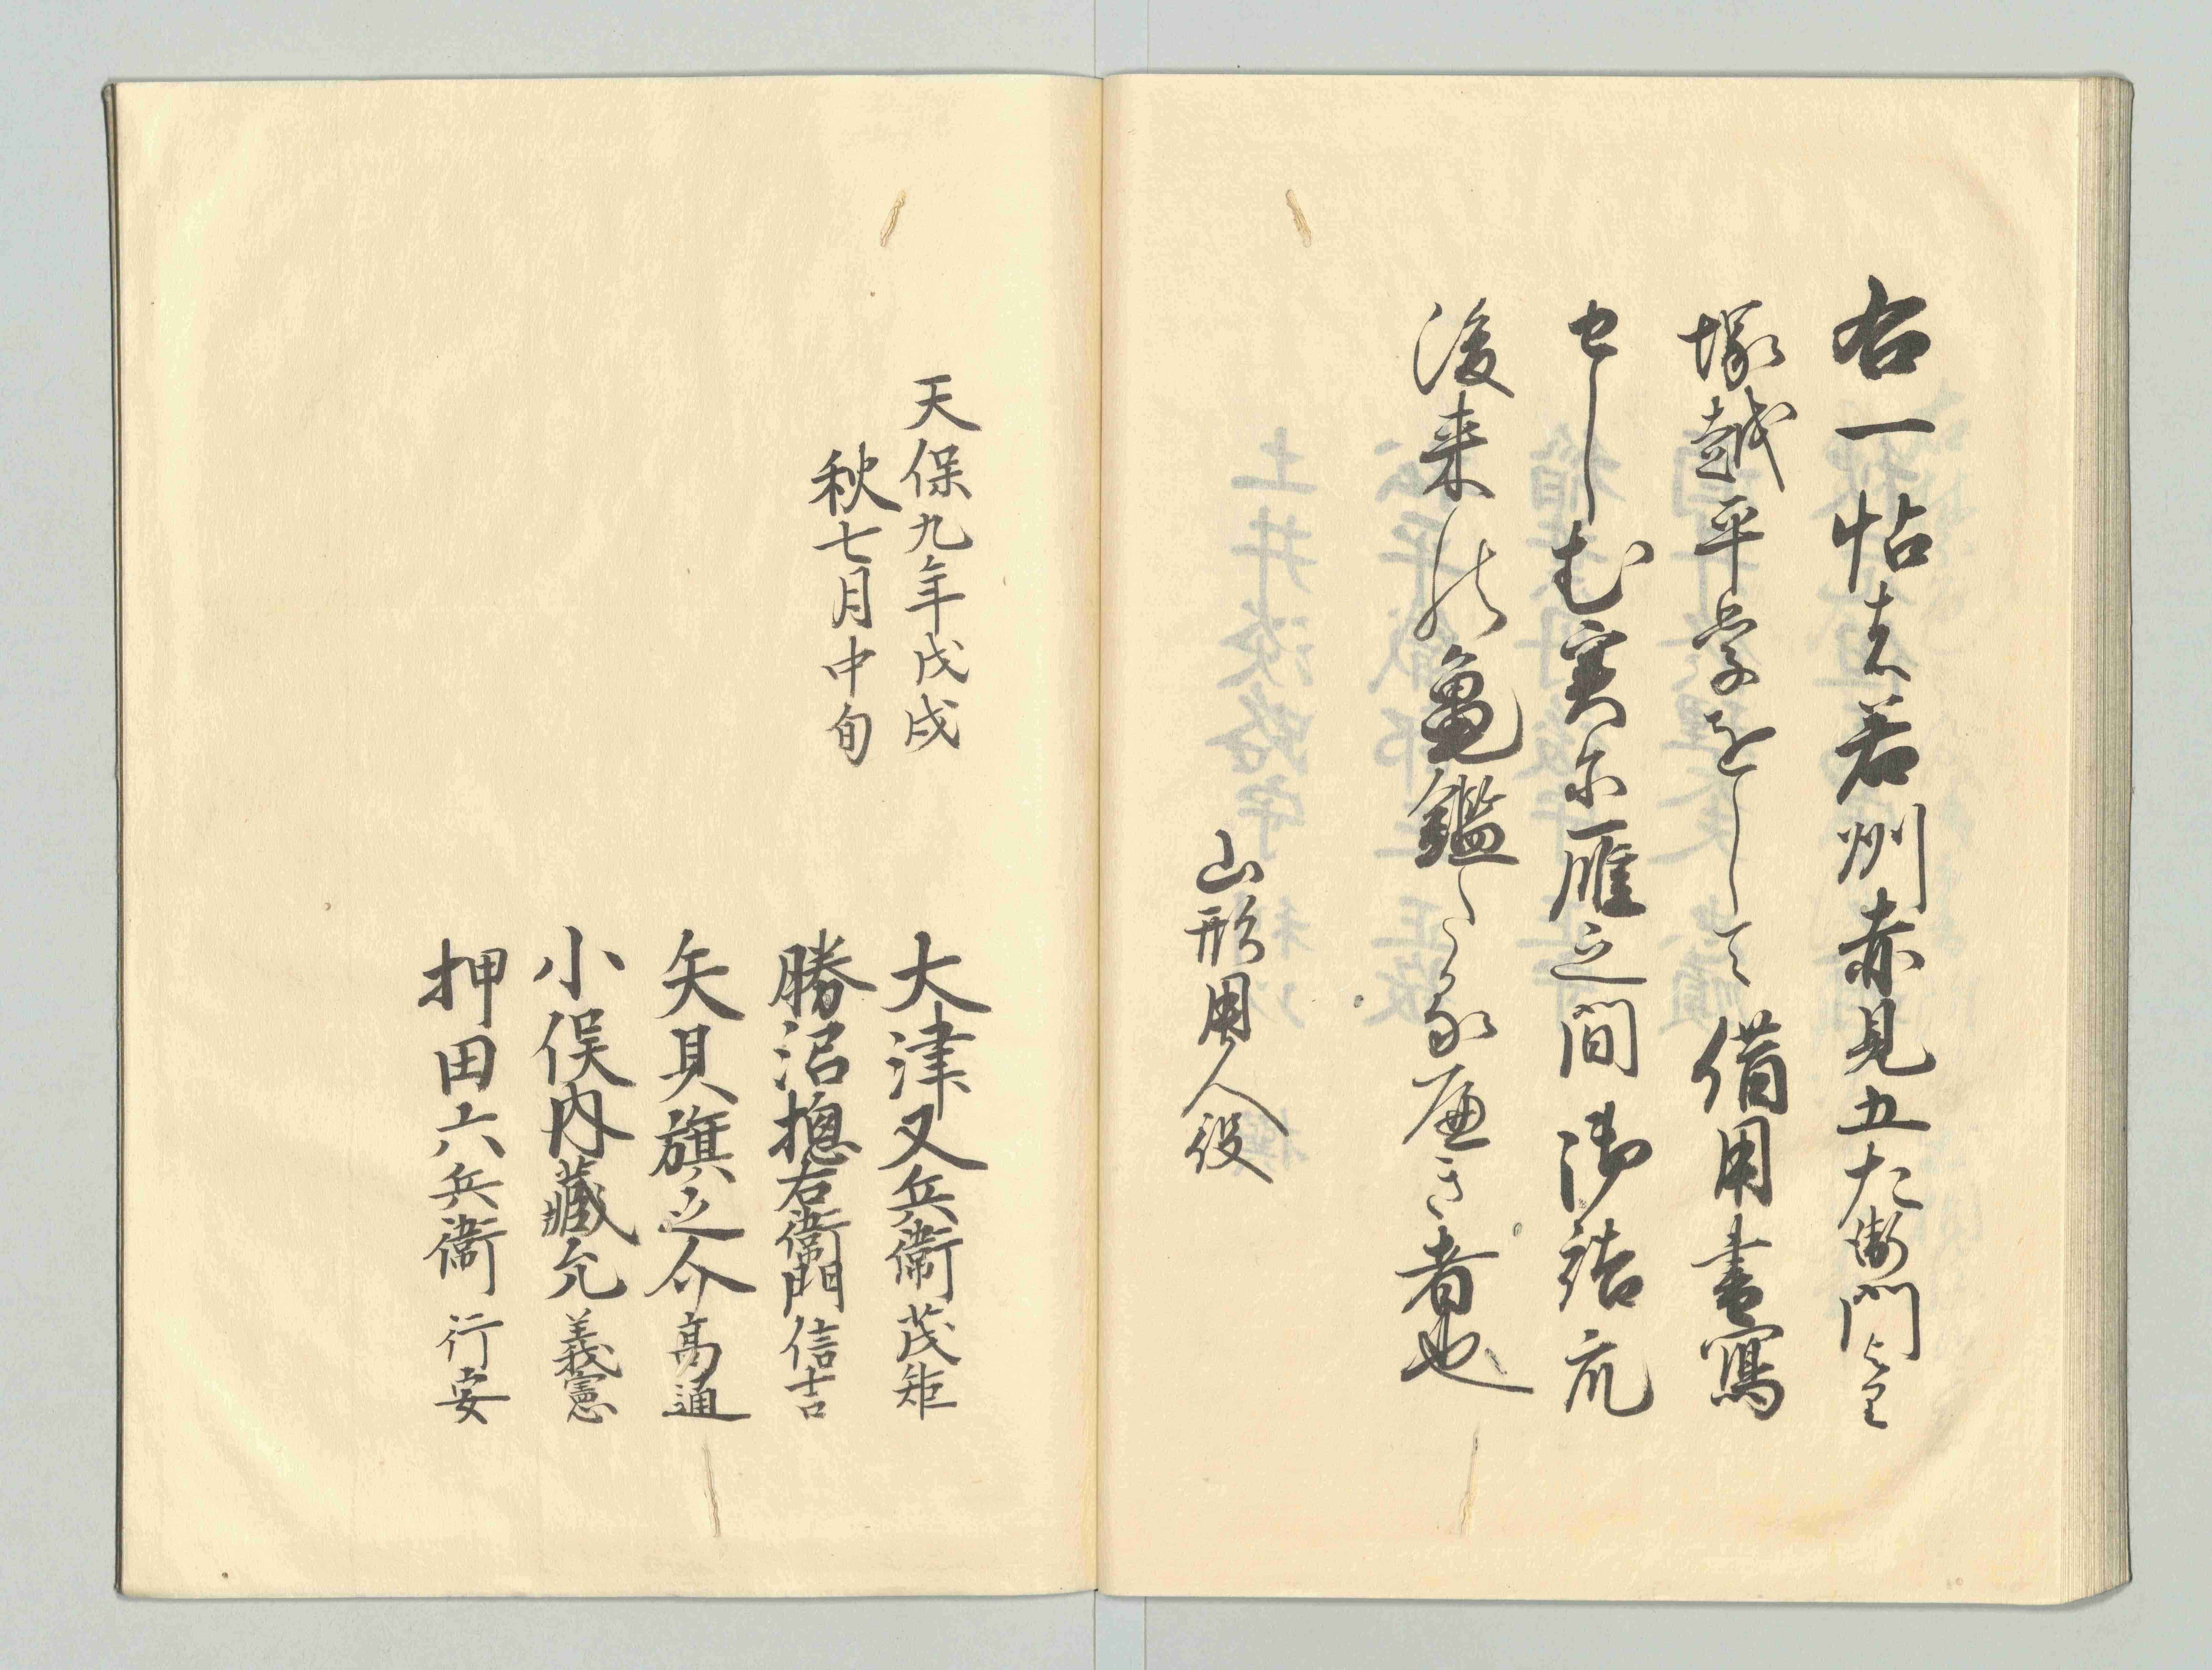 右一帖者若州赤見五左衛門より
塚越平学をして借用書寫
せしむ実尓雁之間御詰
後来の亀鑑たる遍き者也
山形用人役
天保九年戊戌
秋七月中旬
大津又兵衛茂矩
勝沼摠右衛門信吉
矢貝旗之介高通
小俣内藏允義憲
押田六兵衛行安